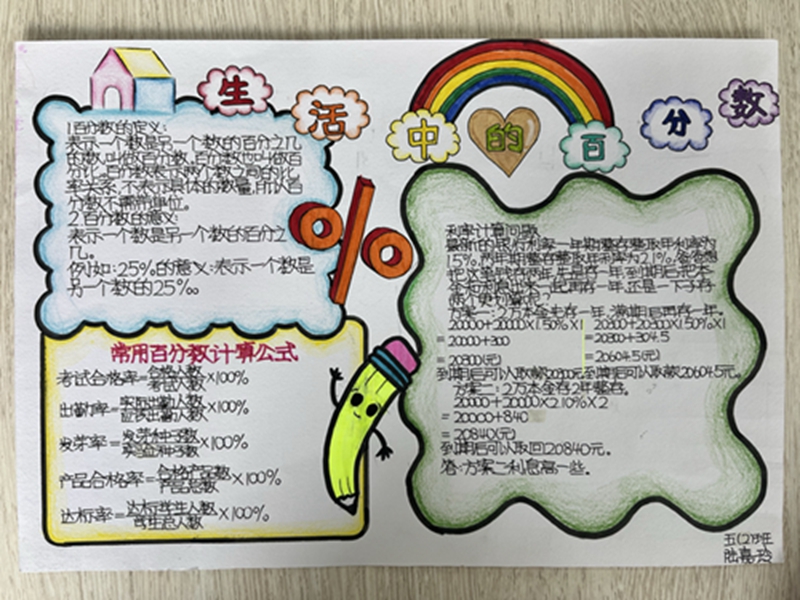 生活中的百分数
1.百分数的定义:
表示一个数是另一个数的百分之几
的数,叫做百分数,百分数也叫做百
分比。百分数表示两个数之间的比
率关系,不表示具体的数量,所以百
分数不需带单位。
2.百分数的意义:
表示一个数是另一个数的百分之
几。
例如:25%的意义:表示一个数是
另一个数的25%。
%
常用百分数计算公式
考试合格率=合格人数/考试人数×100%
出勤率=实际出勤人数/应该出勤人数×100%
发芽率=发芽种子数/实验种子数×100%
产品合格率=合格产品数/产品总数×100%
达标率=达标学生人数/学生总人数×100%
利率计算问题
最新的银行利率一年期整存整取年利率为
1.5%,两年期整存整取年利率为2.1%,爸爸想
把这笔钱存两年,先是存一年,到期后把本
金和利息出来一起再存一年,还是一下子存
两个更划算呢?
方案一:2万本金先存一年,满期后再存一年。
20000+20000×1.50%×1
=20000+300
=20300(元)
到期后可以取款20300元
20300+20300×1.50%×1
=20300+304.5
=20604.5(元)
到期后可以取款20604.5元。
方案二:2万本金存2年整存。
20000+20000×2.10%×2
=20000+840
=20840(元)
到期后可以取回20840元。
答:方案二利息高一些。
五(2)班
陆嘉玲